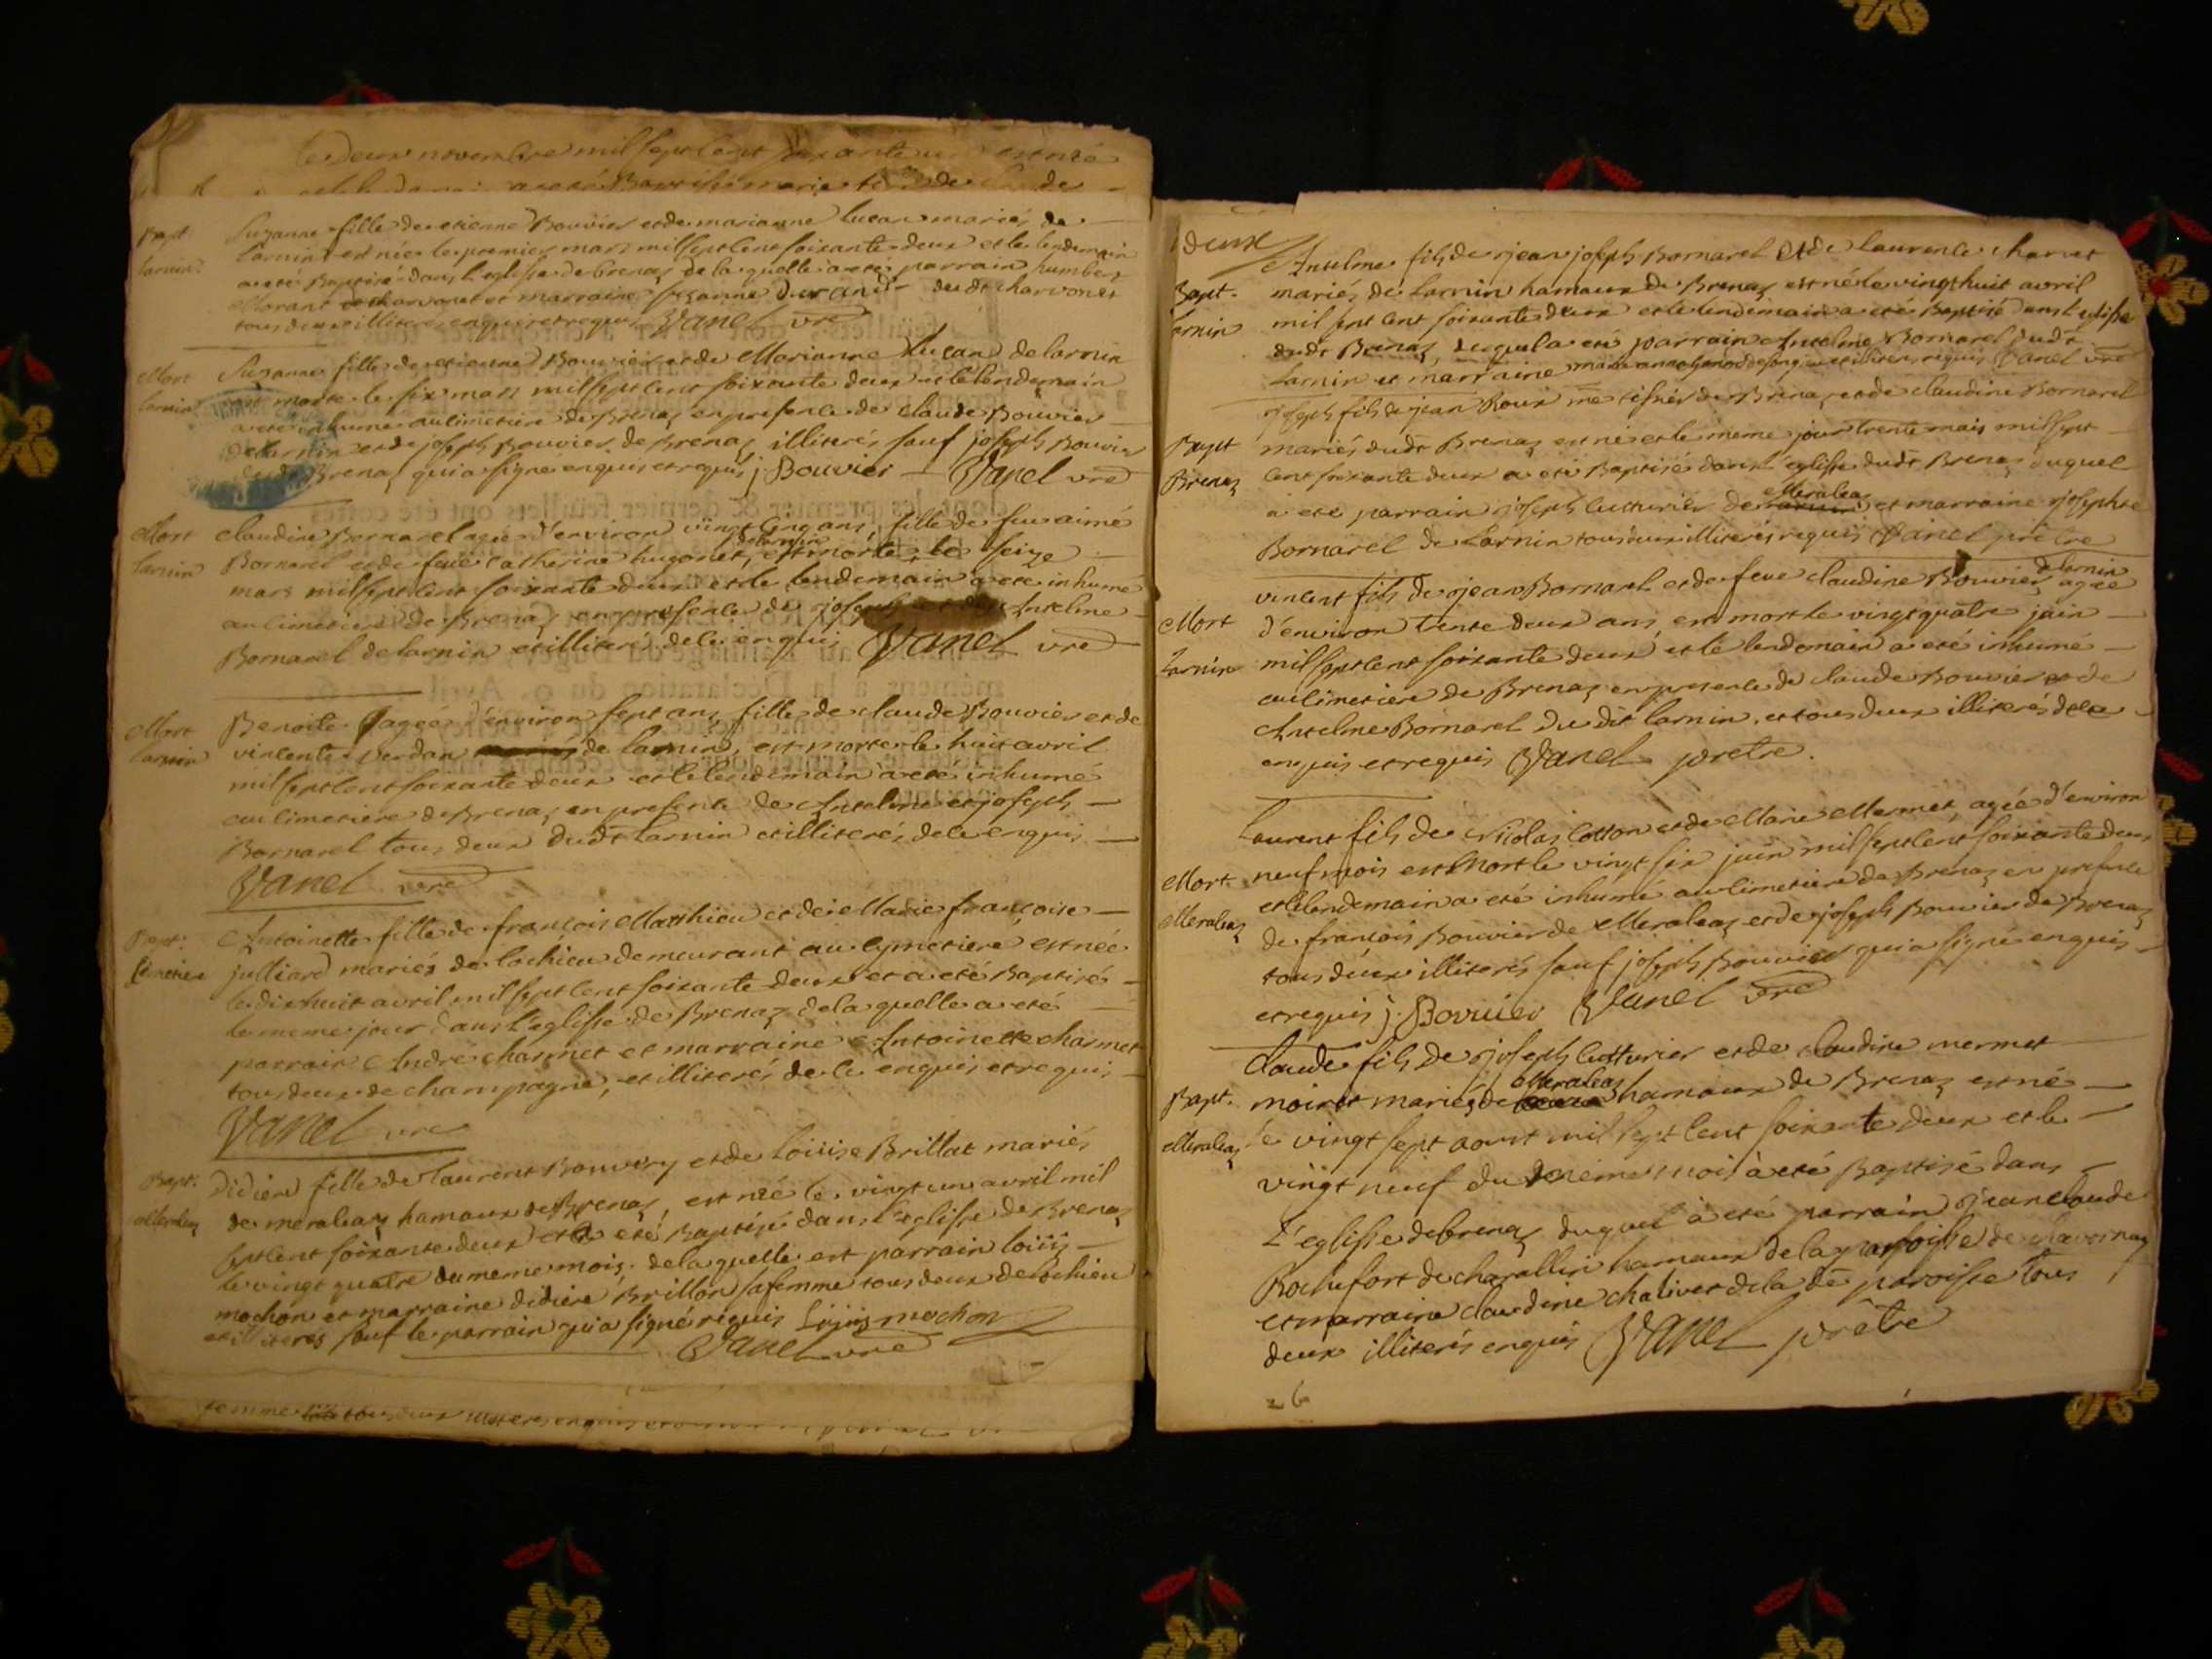 le deux novembre mil sept cent soixante est née
a eté Baptisé marie de
Bapt.
larnin.
Suzanne fille de etienne Bouvier et de marianne lucan mariés de
larnin est née le premier mars mil sept cent soixante deux et le lendemain
a eté Baptisé dans l'eglisse de brenaz de la quelle a eté parrain humbert
Morant et marraine suzanne durand dudt charvonet
tous deux illiterés enquis et requis Vanel vre
Mort
larnin
Suzanne fille de etienne Bouvier et de Marianne lucan de larnin
est morte le six mars mil sept cent soixante deux et le lendemain
a eté inhumé au cimetiere de Brenaz en presence de claude Bouvier
de larnin et de joseph Bouvier de Brenaz illiterés sauf joseph Bouvier
dudt Brenaz qui a signé enquis et requis j Bouvier Vanel vre
Mort
larnin
claudine Bornarel agée d'environ vingt cinq ans, fille de feu aimé
Bornarel et de feue catherine hugonet, de larnin est morte le seize
mars mil sept cent soixante deux et le lendemain a eté inhumé
au cimetiere de Brenaz en presence de joseph et de Anselme
Bornarel de larnin et illiterés de ce enquis Vanel vre
Mort
larnin
Benoite agée d'environ sept ans, fille de claude Bouvier et de
vincente perdan de larnin, est morte le huit avril
mil sept cent soixante deux et le lendemain a eté inhumé
au cimetiere de Brenaz en presence de Anselme et joseph
Bornarel tous deux dudt larnin et illiterés de ce enquis
Vanel vre
Bapt.
Cimetiere
Antoinette fille de françois Matthieu et de Marie françoise
julliard mariés de lochieu demeurant au cymetiere est née
le dix huit avril mil sept cent soixante deux et a eté Baptisée
le meme jour dans l'eglisse de Brenaz de la quelle a eté
parrain André charmet et marraine Antoinette charmet
tous deux de champagne, et illiterés de ce enquis et requis
Vanel vre
Bapt.
Meraleaz
Didiere fille de laurent Bouvery et de loiiise Brillat mariés
de meraleaz hamaux de Brenaz, est née le vingt un avril mil
sept cent soixante deux et a eté Baptisé dans l'eglisse de Brenaz
le vingt quatre du meme mois. de la quelle est parrain loiiis
mochon et marraine didiere Brillon sa femme tous deux de lochieu
et illiterés sauf le parrain qui a signé requis loiiis mochon
Vanel vre
femme tous deux illiterés enquis et
deux
Bapt.
larnin
Anselme fils de jean joseph Bornarel et de laurence charvet
mariés de larnin hamaux de Brenaz est né le vingt huit avril
mil sept cent soixante deux et le lendemain a eté Baptisé dans l'eglisse
dudt Brenaz, duquel a eté parrain Anselme Bornarel dudt
larnin et marraine et illiterés requis Vanel vre
Bapt
Brenaz
joseph fils de jean Roux me tissier de Brenaz et de claudine Bornarel
mariés dudt Brenaz est né et le meme jour trente mais mil sept
cent soixante deux a eté Baptisé dans l'eglisse dudt Brenaz duquel
a eté parrain joseph cutturier de Meraleaz et marraine josephte
Bornarel de larnin tous deux illiterés requis Vanel prêtre
Mort
larnin
vincent fils de jean Bornarel et de feue claudine Bouvier de larnin agée
d'environ trente deux ans, est mort le vingt quatre juin
mil sept cent soixante deux et le lendemain a eté inhumé
au cimetiere de Brenaz en presence de claude Bouvier et de
Anselme Bornarel du dit larnin, et tous deux illiterés de ce
enquis et requis Vanel pretre.
Mort.
Meraleaz
Laurent fils de Nicolas Cotton et de Marie Mermet, agée d'environ
neuf mois est Mort le vingt six juin mil sept cent soixante deux
et le lendemain a eté inhumé au cimetiere de Brenaz en presence
de françois Bouvier de Meraleaz et de joseph Bouvier de Brenaz
tous deux illiterés sauf joseph Bouvier qui a signé enquis
et requis j. Bouvier Vanel vre
Bapt.
Meraleaz
Claude fils de joseph cutturier et de claudine mermet
moiret mariés de Meraleaz hamaux de Brenaz est né
le vingt sept aoust mil sept cent soixante deux et le
vingt neuf du meme mois a eté Baptisé dans
l'eglisse de brenaz duquel a eté parrain jean claude
Rochefort de charallin hamaux de la paroisse de
et marraine claudine chalivet de la de paroisse tous
deux illiterés enquis Vanel prêtre